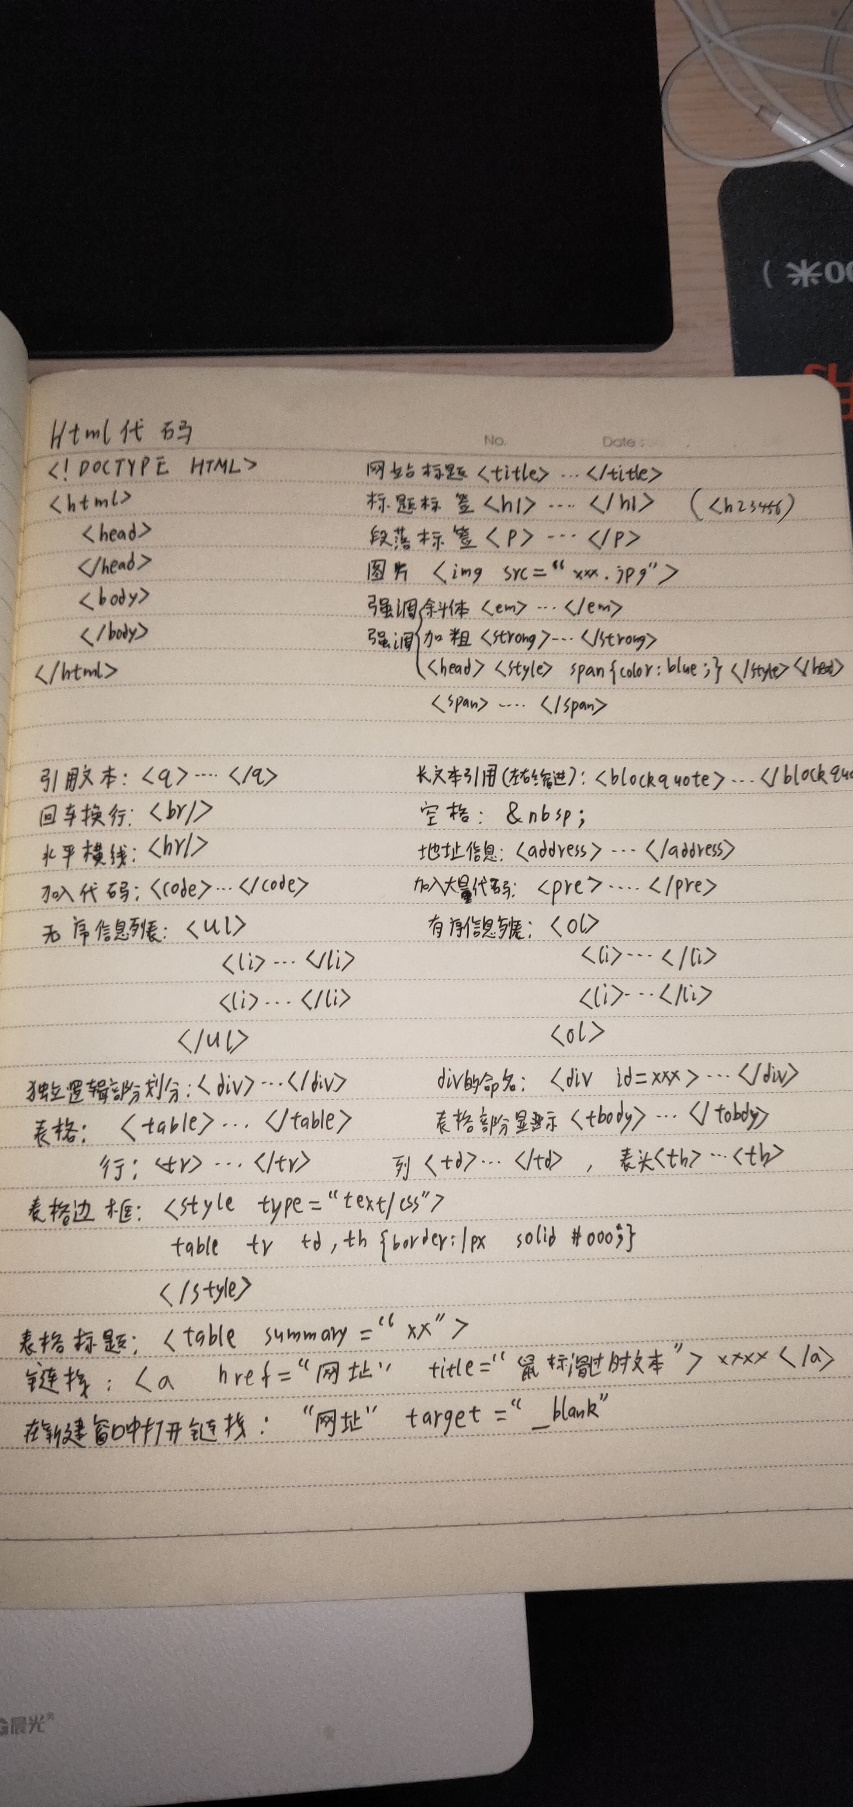 00米）
Html代码
No.
Date:
<!DOCTYPE HTML> 网站标题<title>…</title>
<html> 标题标签<h1>….</h1> (<h23456)
<head> 段落标签<P>…</P>
</head> 图片 <img src="xxx.jpg">
<body> 强调 斜体<em>…</em>
</body> 强调 加粗<strong>…</strong>
</html> <head><style> span{color:blue;}</style></head>
<span>….</span>
引用文本:<q>….</q> 长文本引用(左右缩进):<blockquote>…</blockquo
回车换行:<br/> 空格:&nbsp;
水平横线:<hr/> 地址信息:<address>…</address>
加入代码:<code>…</code> 加入大量代码:<pre>….</pre>
无序信息列表:<ul> 有序信息列表:<ol>
<li>…</li> <li>…</li>
<li>…</li> <li>…</li>
</ul> <ol>
独立逻辑部分划分:<div>…</div> div的命名:<div id=xxx>…</div>
表格: <table>…</table> 表格部分显示<tbody>…</tobdy>
行:<tr>…</tr> 列<td>…</td>,表头<th>…<th>
表格边框:<style type="text/css">
table tr td,th{border:1px solid #000;}
</style>
表格标题:<table summary="xx">
链接:<a href="网址" title="鼠标滑过时文本">xxxx</a>
在新建窗口中打开链接: "网址" target="_blank"
G晨光®